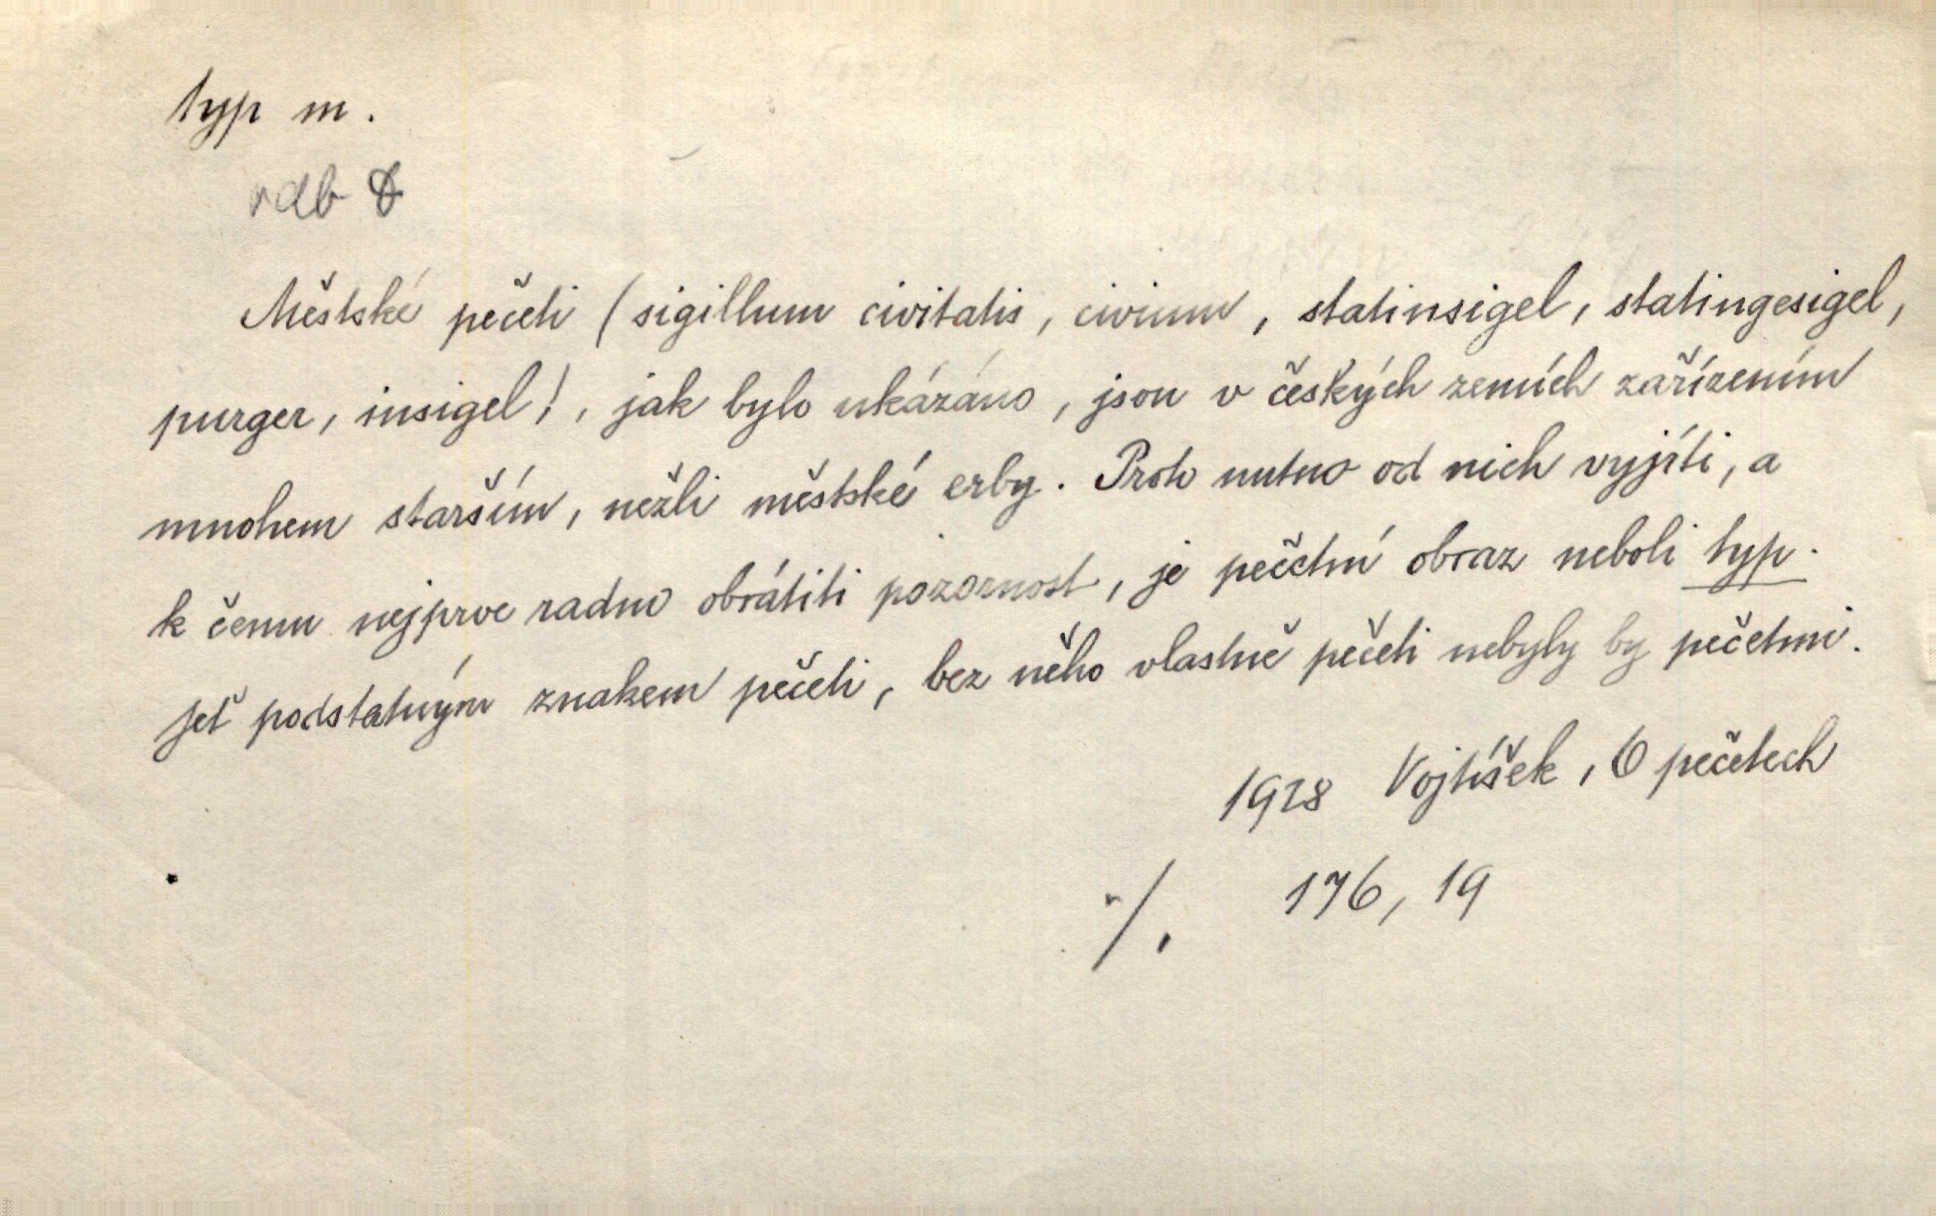 typ m.
rdb
Městské pečeti (sigillum civitatis, civium, statinsigel, statingesigel,
purger, insigel!, jak bylo ukázáno, jsou v českých zemích zařízením
mnohem starším, nežli městské erby. Proto nutno od nich vyjíti, a
k čemu nejprve radno obrátiti pozornost, je pečetní obraz neboli typ.
Jeť podstatným znakem pečeti, bez něho vlastně pečeti nebyly by pečetmi.
1928 Vojtíšek, O pečetech
·/. 176, 19